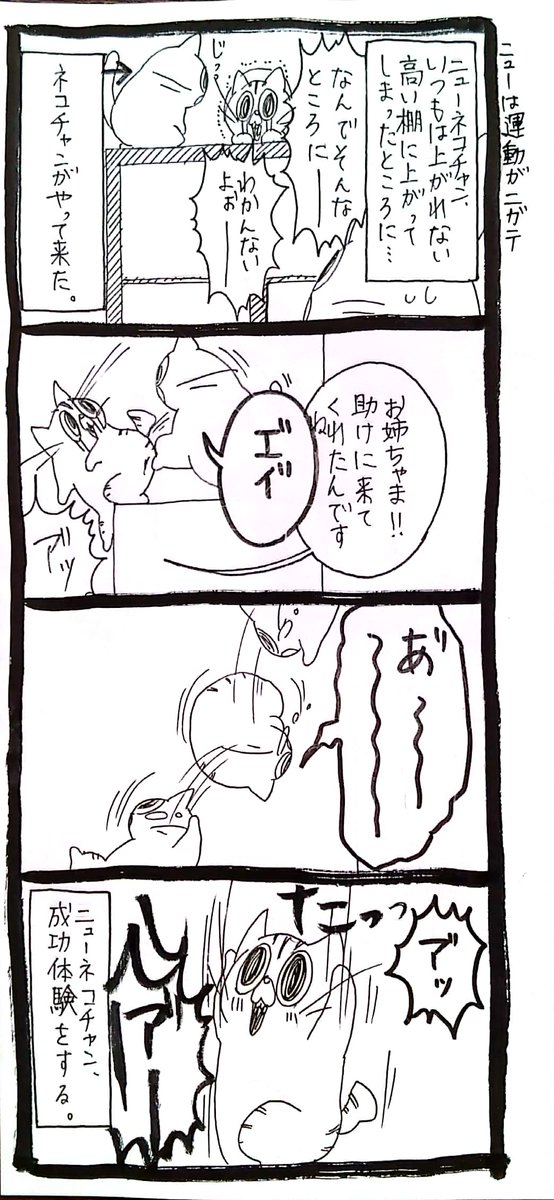 ニューは運動がニガテ
ニューネコチャン、
いつもは上がれない
高い棚に上がって
しまったところに…
なんでそんな
ところにー
じっ…
わかんない
よおーー
ネコチャンがやって来た。
お姉ちゃま!!
助けに来て
くれたんです
ね
エイ
アッ
あ゛〜〜
アッ
ナニつっ
ルアーー
ニューネコチャン、
成功体験をする。